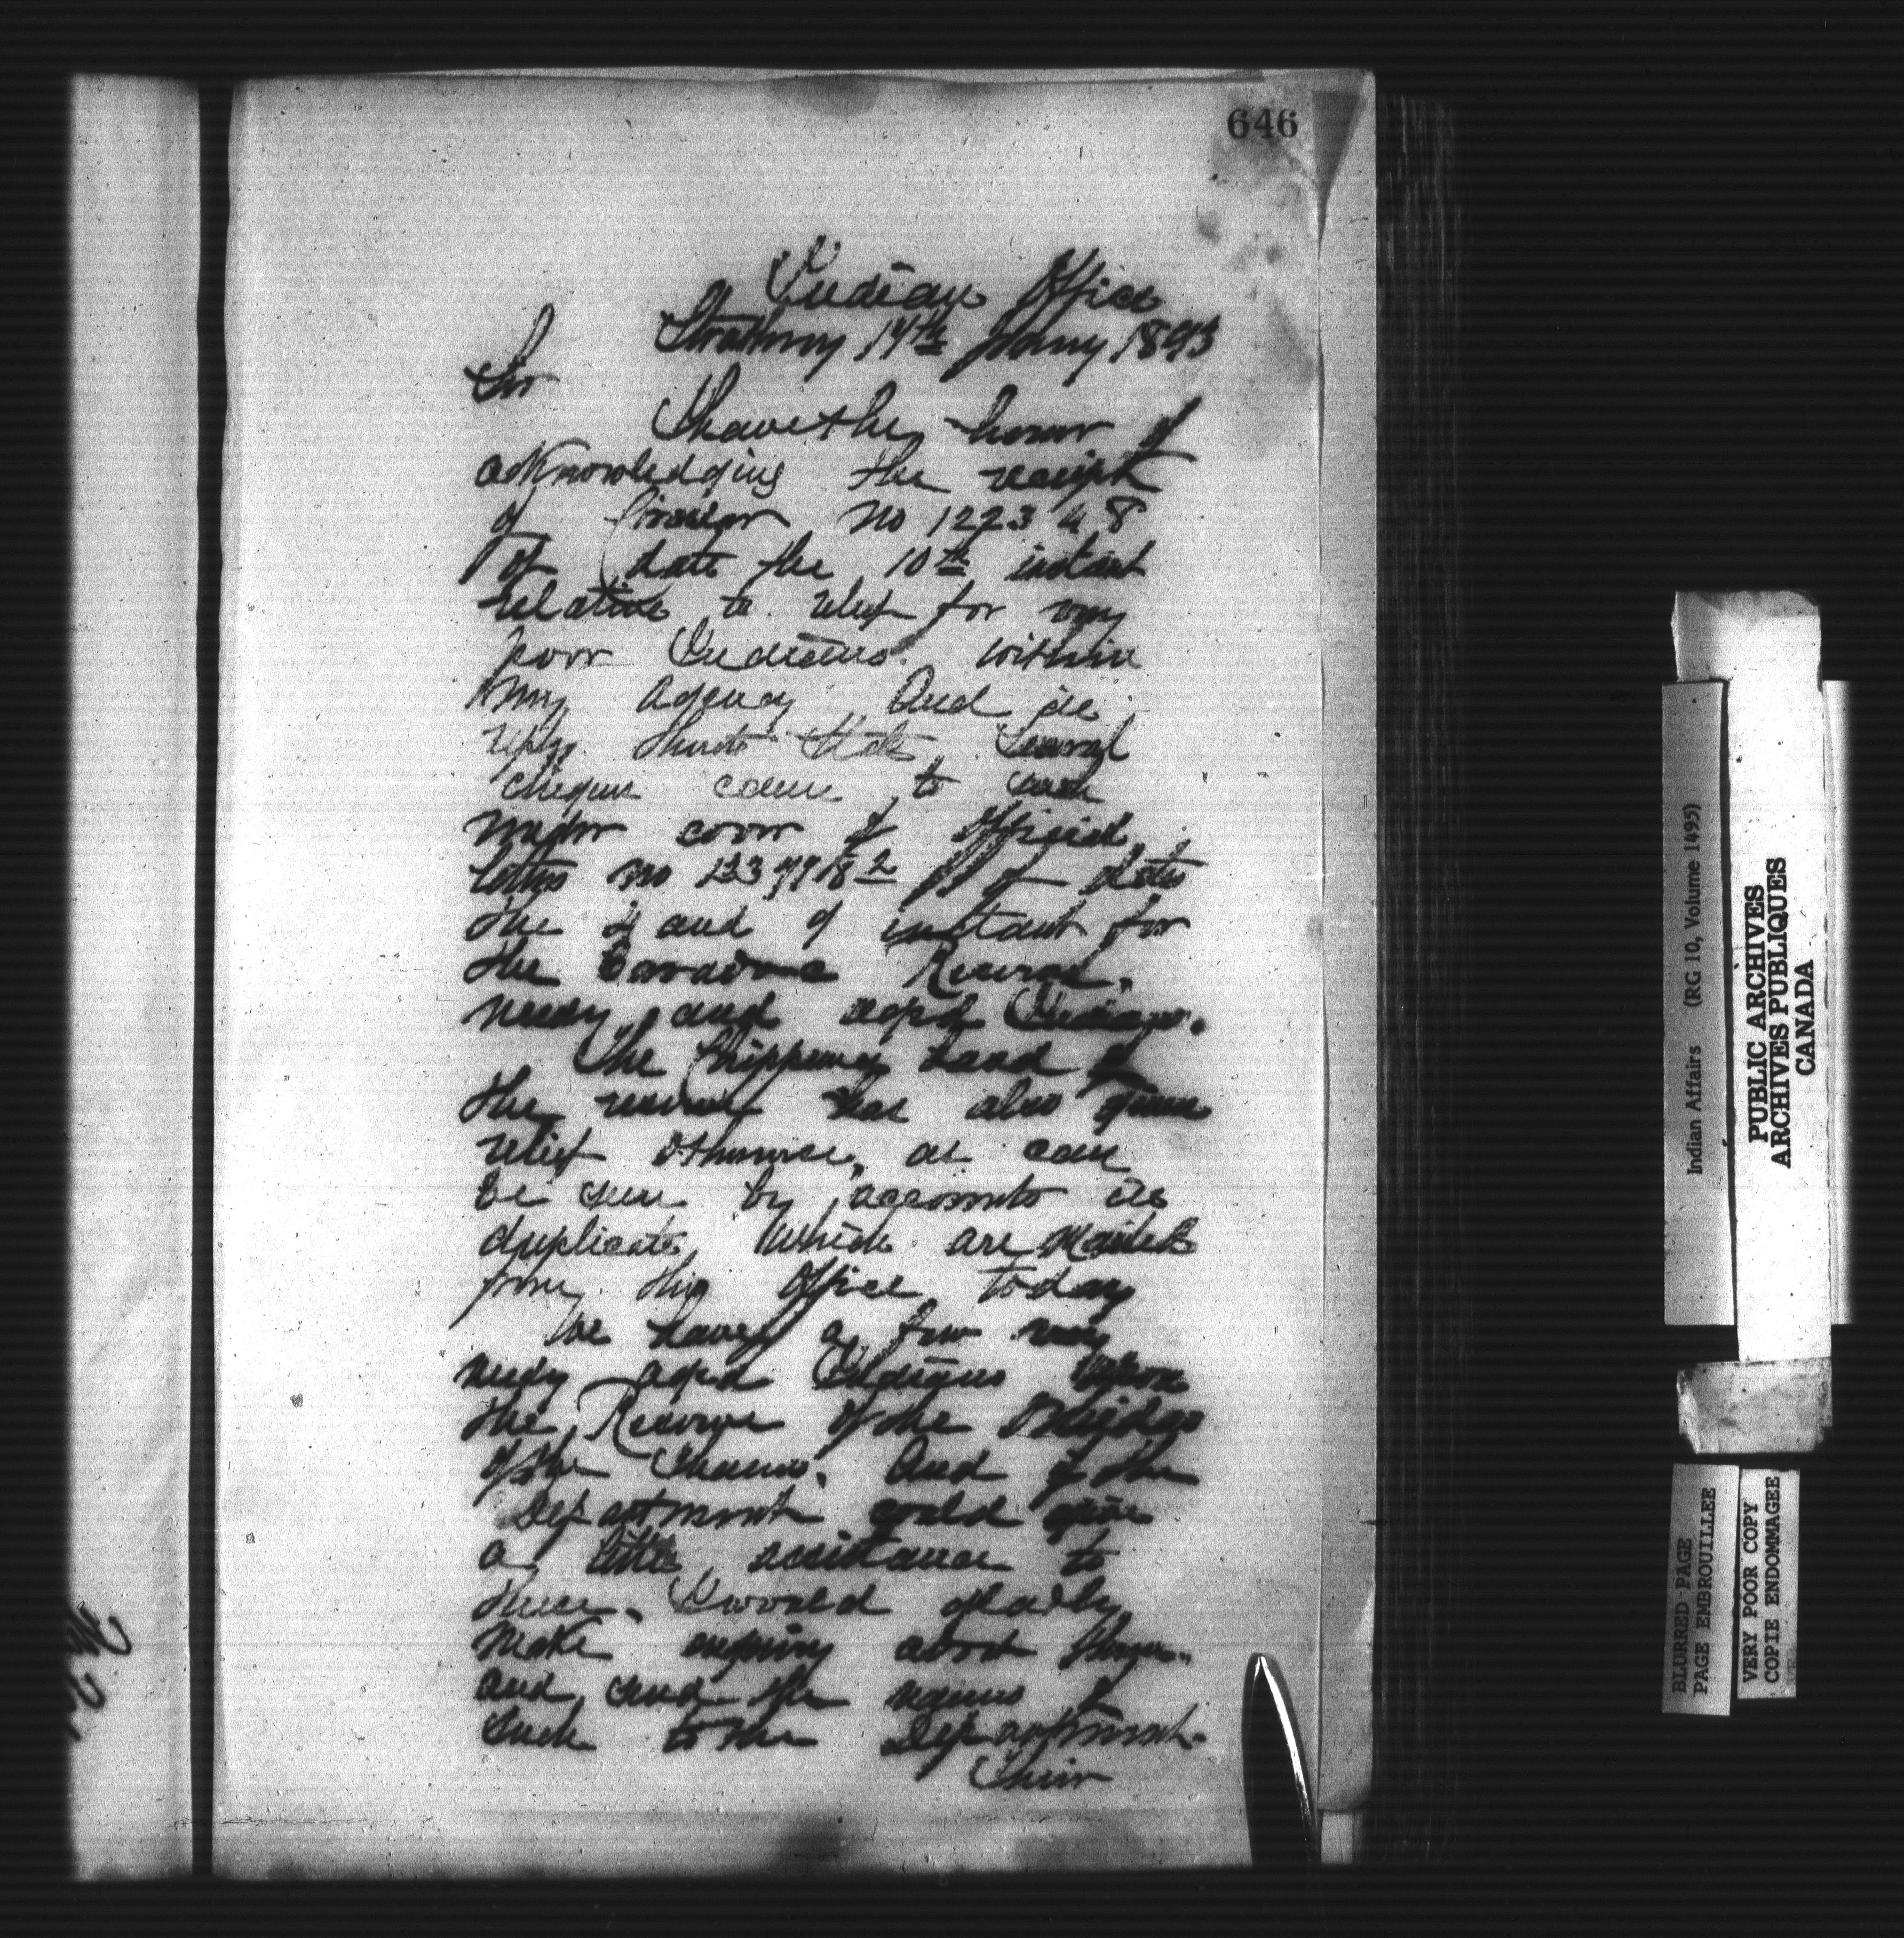 646
Indian Office
Strathroy 14th Jany 1893
Sir
I have the honor of
acknowledging the receipt
of Circular No 122348
of date the 10th instant
relative to relief for very
poor Indians within
my Agency And in
reply thereto State Several
cheques came to
under cover of Official
letters no of date
the and 9 instant for
the Caradoc Reserve
needy and aged Indians.
The Chippewa band of
the reserve has also given
relief otherwise, as can
be seen by accounts in
duplicate which are Mailed
from this Office today
We have a few very
needy aged Indians Upon
the Reserve of the
of the Thames. And if the
Department could give
a little assistance to
these. I would gladly
Make enquiry about them.
and send the names of
such to the Department.
Their
Indian Affairs (RG 10, Volume 1495)
PUBLIC ARCHIVES
ARCHIVES PUBLIQUES
CANADA
BLURRED PAGE
PAGE EMBROUILLEE
VERY POOR COPY
COPIE ENDOMMAGEE